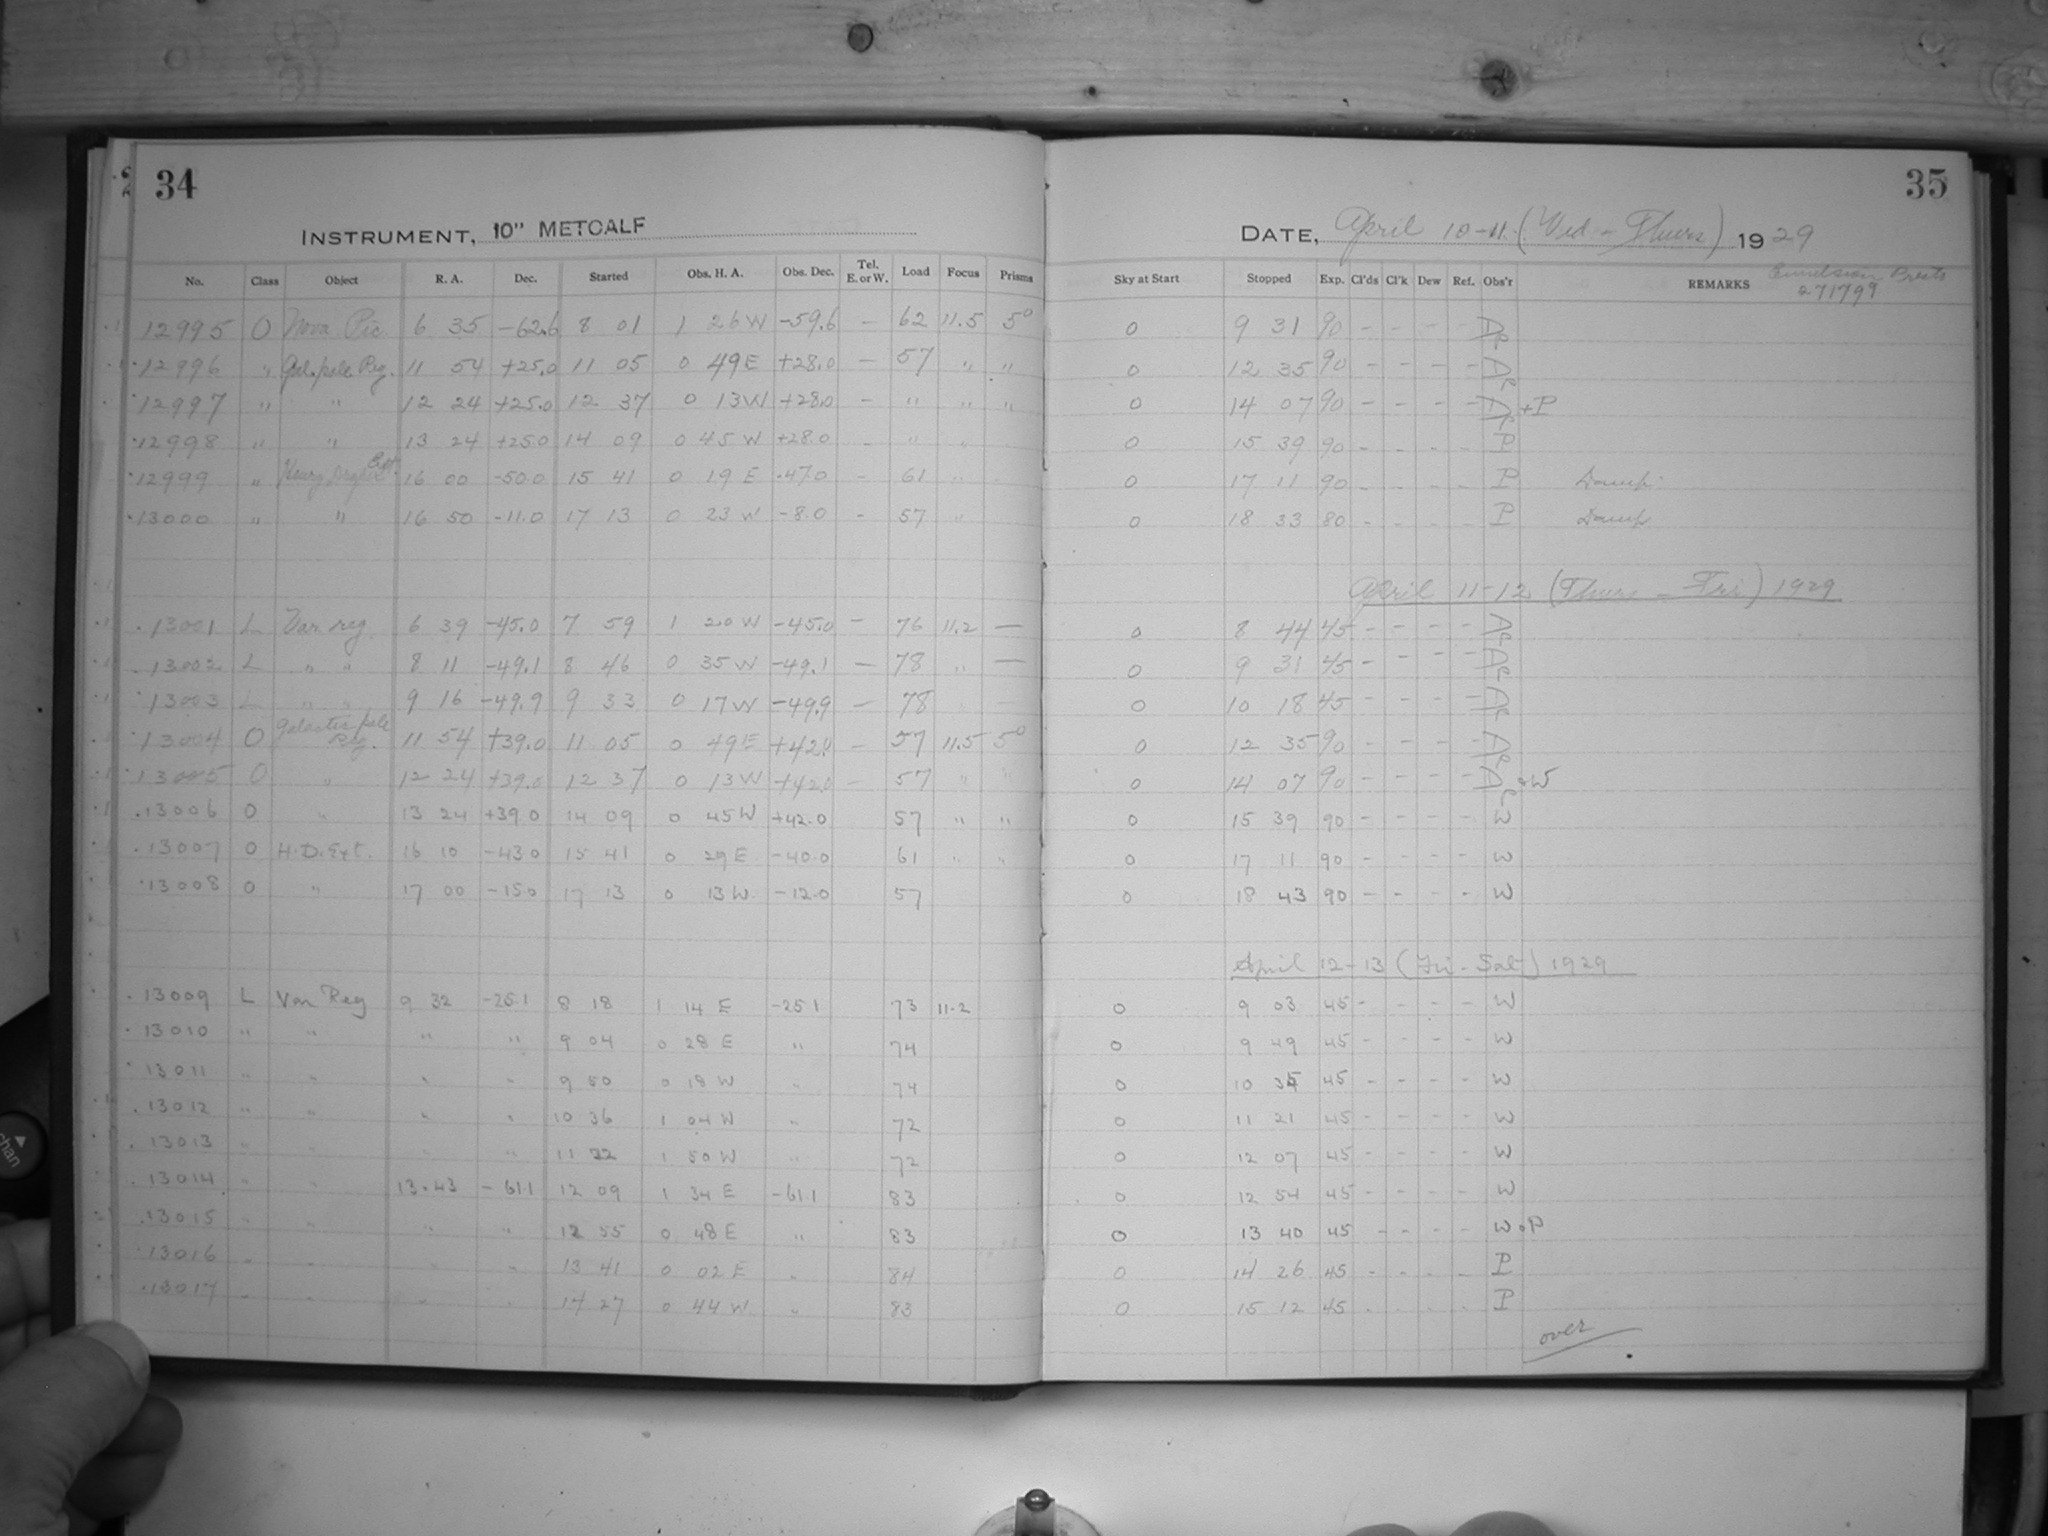 34
INSTRUMENT, 10" METCALF
No. Class Object R. A. Dec. Started Obs. H. A. Obs. Dec. Tel. E. or W. Load Focus Prisms
12995 O Nova Pic 6 35 -62.6 8 01 1 26 W -59.6 - 62 11.5 5°
12996 " Gal. pole Reg. 11 54 +25.0 11 05 0 49 E +28.0 - 57 " "
12997 " " 12 24 +25.0 12 37 0 13 W +28.0 - " " "
12998 " " 13 24 +25.0 14 09 0 45 W +28.0 - " "
12999 " Henry Draper Ext. 16 00 -50.0 15 41 0 19 E -47.0 - 61 "
13000 " " 16 50 -11.0 17 13 0 23 W -8.0 - 57 "
13001 L Var reg 6 39 -45.0 7 59 1 20 W -45.0 - 76 11.2 —
13002 L " " 8 11 -49.1 8 46 0 35 W -49.1 — 78 " —
13003 L " " 9 16 -49.9 9 33 0 17 W -49.9 — 78
13004 O Galactic pole Reg. 11 54 +39.0 11 05 0 49 E +42.0 - 57 11.5 5°
13005 O " 12 24 +39.0 12 37 0 13 W +42.0 - 57 " "
13006 O " 13 24 +39.0 14 09 0 45 W +42.0 57 " "
13007 O H.D. Ext. 16 10 -43.0 15 41 0 29 E -40.0 61 " "
13008 O " 17 00 -15.0 17 13 0 13 W -12.0 57
13009 L Var Reg 9 32 -25.1 8 18 1 14 E -25.1 73 11.2
13010 " " " " 9 04 0 28 E " 74
13011 " " " " 9 50 0 18 W " 74
13012 " " " " 10 36 1 04 W " 72
13013 " " " " 11 22 1 50 W " 72
13014 " " 13.43 -61.1 12 09 1 34 E -61.1 83
13015 " " " " 12 55 0 48 E " 83
13016 " " " " 13 41 0 02 E " 84
13017 " " " " 14 27 0 44 W " 83
35
DATE, April 10-11 (Wed - Thurs) 1929
Sky at Start Stopped Exp. Cl'ds Cl'k Dew Ref. Obs'r REMARKS Emulsion Presto 271799
0 9 31 90 - - - -
0 12 35 90 - - - -
0 14 07 90 - - - - + P
0 15 39 90 - - - - P
0 17 11 90 - - - - P Damp
0 18 33 80 - - - - P Damp
April 11-12 (Thurs - Fri) 1929
0 8 44 45 - - - -
0 9 31 45 - - - -
0 10 18 45 - - - -
0 12 35 90 - - - -
0 14 07 90 - - - - + W
0 15 39 90 - - - - W
0 17 11 90 - - - - W
0 18 43 90 - - - - W
April 12-13 (Fri - Sat) 1929
0 9 03 45 - - - - W
0 9 49 45 - - - - W
0 10 35 45 - - - - W
0 11 21 45 - - - - W
0 12 07 45 - - - - W
0 12 54 45 - - - - W
0 13 40 45 - - - - W + P
0 14 26 45 - - - - P
0 15 12 45 - - - - P
over